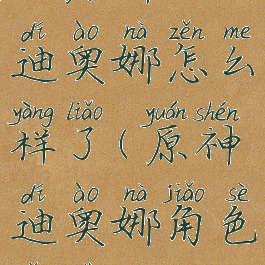 dí ào nà zěn me
迪奥娜怎么
yàng liǎo yuán shén
样了(原神
dí ào nà jiǎo sè
迪奥娜角色